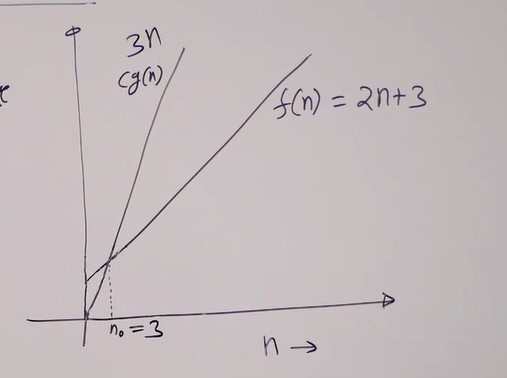 3n
cg(n)
f(n) = 2n+3
n₀ = 3
n →